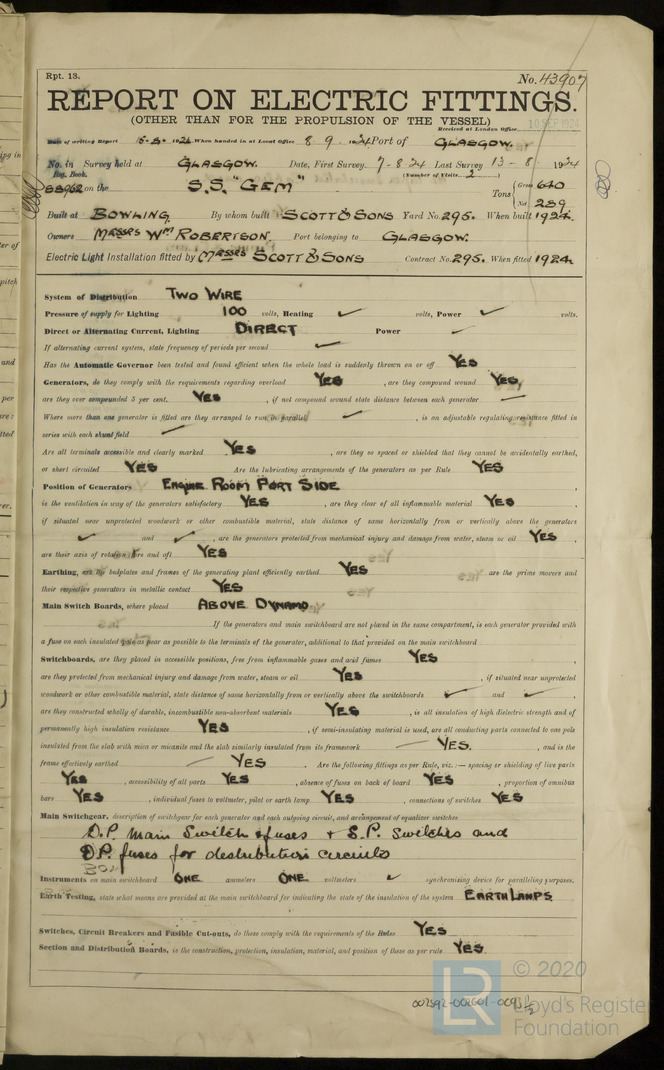 Rpt. 13.
No. 43907
REPORT ON ELECTRIC FITTINGS.
(OTHER THAN FOR THE PROPULSION OF THE VESSEL)
Received at London Office
10 SEP 1924
Date of writing Report 1924 When handed in at Local Office 8 9 1924 Port of GLASGOW
No. in Reg. Book. Survey held at GLASGOW. Date, First Survey 7-8-24 Last Survey 13-8-1924
(Number of Visits 2)
88962 on the S.S. "GEM" Tons { Gross 640
Net 289
Built at BOWLING. By whom built SCOTT & SONS Yard No. 295. When built 1924.
Owners MESSRS WM ROBERTSON. Port belonging to GLASGOW.
Electric Light Installation fitted by MESSRS SCOTT & SONS Contract No. 295. When fitted 1924.
System of Distribution TWO WIRE
Pressure of supply for Lighting 100 volts, Heating ✓ volts, Power ✓ volts.
Direct or Alternating Current, Lighting DIRECT Power ✓
If alternating current system, state frequency of periods per second ✓
Has the Automatic Governor been tested and found efficient when the whole load is suddenly thrown on or off YES
Generators, do they comply with the requirements regarding overload YES, are they compound wound YES,
are they over compounded 5 per cent. YES, if not compound wound state distance between each generator —
Where more than one generator is fitted are they arranged to run in parallel ✓, is an adjustable regulating resistance fitted in
series with each shunt field —
Are all terminals accessible and clearly marked YES, are they so spaced or shielded that they cannot be accidentally earthed,
or short circuited YES Are the lubricating arrangements of the generators as per Rule YES
Position of Generators ENGINE ROOM PORT SIDE,
is the ventilation in way of the generators satisfactory YES, are they clear of all inflammable material YES,
if situated near unprotected woodwork or other combustible material, state distance of same horizontally from or vertically above the generators
✓ and ✓, are the generators protected from mechanical injury and damage from water, steam or oil YES,
are their axis of rotation fore and aft YES
Earthing, are the bedplates and frames of the generating plant efficiently earthed YES are the prime movers and
their respective generators in metallic contact YES
Main Switch Boards, where placed ABOVE DYNAMO
If the generators and main switchboard are not placed in the same compartment, is each generator provided with
a fuse on each insulated pole as near as possible to the terminals of the generator, additional to that provided on the main switchboard
Switchboards, are they placed in accessible positions, free from inflammable gases and acid fumes YES,
are they protected from mechanical injury and damage from water, steam or oil YES, if situated near unprotected
woodwork or other combustible material, state distance of same horizontally from or vertically above the switchboards ✓ and ✓,
are they constructed wholly of durable, incombustible non-absorbent materials YES, is all insulation of high dielectric strength and of
permanently high insulation resistance YES, if semi-insulating material is used, are all conducting parts connected to one pole
insulated from the slab with mica or micanite and the slab similarly insulated from its framework — YES., and is the
frame effectively earthed — YES. Are the following fittings as per Rule, viz.:— spacing or shielding of live parts
YES, accessibility of all parts YES, absence of fuses on back of board YES, proportion of omnibus
bars YES, individual fuses to voltmeter, pilot or earth lamp YES, connections of switches YES
Main Switchgear, description of switchgear for each generator and each outgoing circuit, and arrangement of equalizer switches
D.P. Main Switch & fuses & S.P. Switches and
D.P. fuses for destribution circuits
Instruments on main switchboard ONE ammeters ONE voltmeters ✓ synchronizing device for paralleling purposes.
Earth Testing, state what means are provided at the main switchboard for indicating the state of the insulation of the system EARTH LAMPS
Switches, Circuit Breakers and Fusible Cut-outs, do these comply with the requirements of the Rules YES
Section and Distribution Boards, is the construction, protection, insulation, material, and position of these as per rule YES.
© 2020
Lloyd's Register
Foundation
LR
002592-002601-0093 1/2